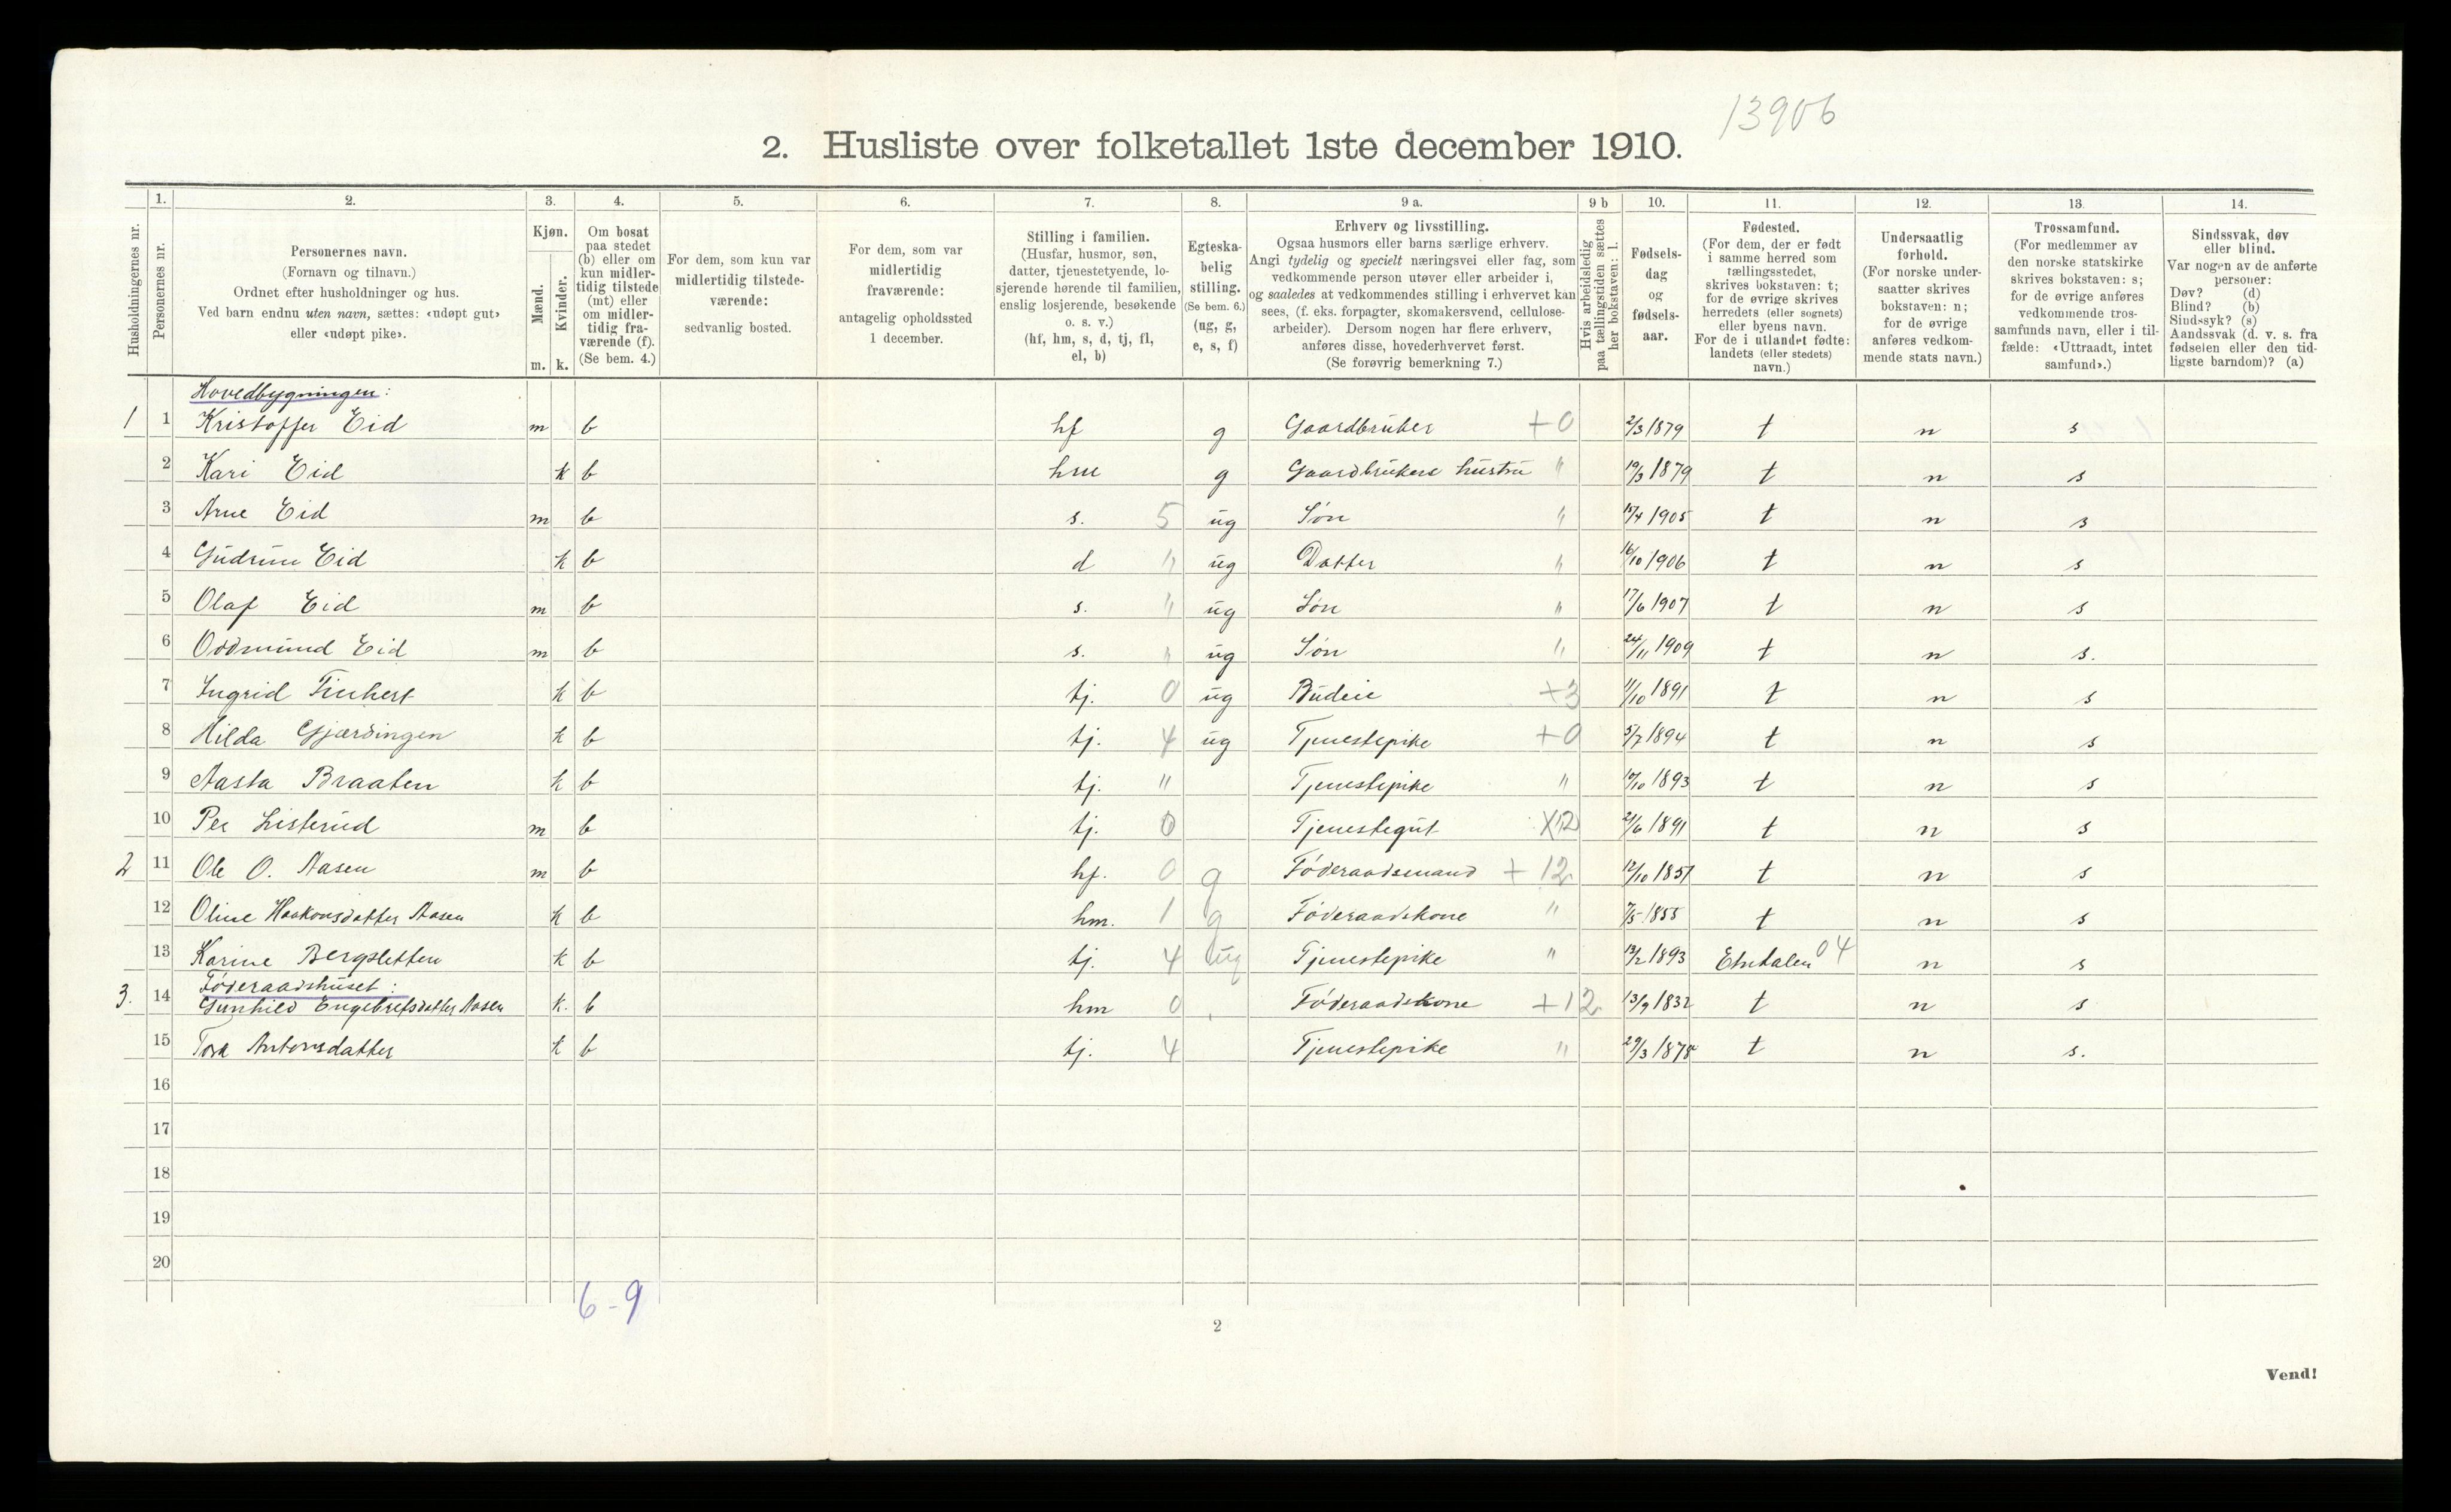 13906
2. Husliste over folketallet 1ste december 1910.
Husholdningernes nr.
1. Personernes nr.
2. Personernes navn.
(Fornavn og tilnavn.)
Ordnet efter husholdninger og hus.
Ved barn endnu uten navn, sættes: «udøpt gut»
eller «udøpt pike».
3. Kjøn.
Mænd. m.
Kvinder. k.
4. Om bosat
paa stedet
(b) eller om
kun midler-
tidig tilstede
(mt) eller
om midler-
tidig fra-
værende (f).
(Se bem. 4.)
5. For dem, som kun var
midlertidig tilstede-
værende:
sedvanlig bosted.
6. For dem, som var
midlertidig
fraværende:
antagelig opholdssted
1 december.
7. Stilling i familien.
(Husfar, husmor, søn,
datter, tjenestetyende, lo-
sjerende hørende til familien,
enslig losjerende, besøkende
o. s. v.)
(hf, hm, s, d, tj, fl,
el, b)
8. Egteska-
belig
stilling.
(Se bem. 6.)
(ug, g,
e, s, f)
9 a. Erhverv og livsstilling.
Ogsaa husmors eller barns særlige erhverv.
Angi tydelig og specielt næringsvei eller fag, som
vedkommende person utøver eller arbeider i,
og saaledes at vedkommendes stilling i erhvervet kan
sees, (f. eks. forpagter, skomakersvend, cellulose-
arbeider). Dersom nogen har flere erhverv,
anføres disse, hovederhvervet først.
(Se forøvrig bemerkning 7.)
9 b Hvis arbeidsledig
paa tællingstiden sættes
her bokstaven: l.
10. Fødsels-
dag
og
fødsels-
aar.
11. Fødested.
(For dem, der er født
i samme herred som
tællingsstedet,
skrives bokstaven: t;
for de øvrige skrives
herredets (eller sognets)
eller byens navn.
For de i utlandet fødte:
landets (eller stedets)
navn.)
12. Undersaatlig
forhold.
(For norske under-
saatter skrives
bokstaven: n;
for de øvrige
anføres vedkom-
mende stats navn.)
13. Trossamfund.
(For medlemmer av
den norske statskirke
skrives bokstaven: s;
for de øvrige anføres
vedkommende tros-
samfunds navn, eller i til-
fælde: «Uttraadt, intet
samfund».)
14. Sindssvak, døv
eller blind.
Var nogen av de anførte
personer:
Døv? (d)
Blind? (b)
Sindssyk? (s)
Aandssvak (d. v. s. fra
fødselen eller den tid-
ligste barndom)? (a)
Hovedbygningen:
1 1 Kristoffer Eid m b hf g Gaardbruker +0 2/3 1879 t n s
2 Kari Eid k b hm g Gaardbrukers hustru " 19/3 1879 t n s
3 Arne Eid m b s. 5 ug Søn " 15/4 1905 t n s
4 Gudrun Eid k b d " ug Datter " 16/10 1906 t n s
5 Olaf Eid m b s. " ug Søn " 17/6 1907 t n s
6 Oddmund Eid m b s. " ug Søn " 24/11 1909 t n s.
7 Ingrid k b tj. 0 ug Budeie +3 11/10 1891 t n s
8 Hilda Gjærdingen k b tj. 4 ug Tjenestepike +0 5/7 1894 t n s
9 Aasta Braaten k b tj. " Tjenestepike " 1893 t n s
10 Per Listerud m b tj. 0 Tjenestegut X12 21/6 1891 t n s
2 11 Ole O. Aasen m b hf. 0 g Føderaadsmand +12 12/10 1851 t n s
12 Oline Haakonsdatter Aasen k b hm. 1 g Føderaadskone " 7/5 1855 t n s
13 Karine Bergsletten k b tj. 4 ug Tjenestepike " 13/2 1893 Etnedalen 04 n s
Føderaadshuset:
3. 14 Gunhild Engebretsdatter Aasen k. b hm 0 Føderaadskone +12 13/9 1832 t n s
15 Tora Antonsdatter k b tj. 4 Tjenestepike " 29/3 1878 t n s.
16
17
18
19
20
6-9
2
Vend!